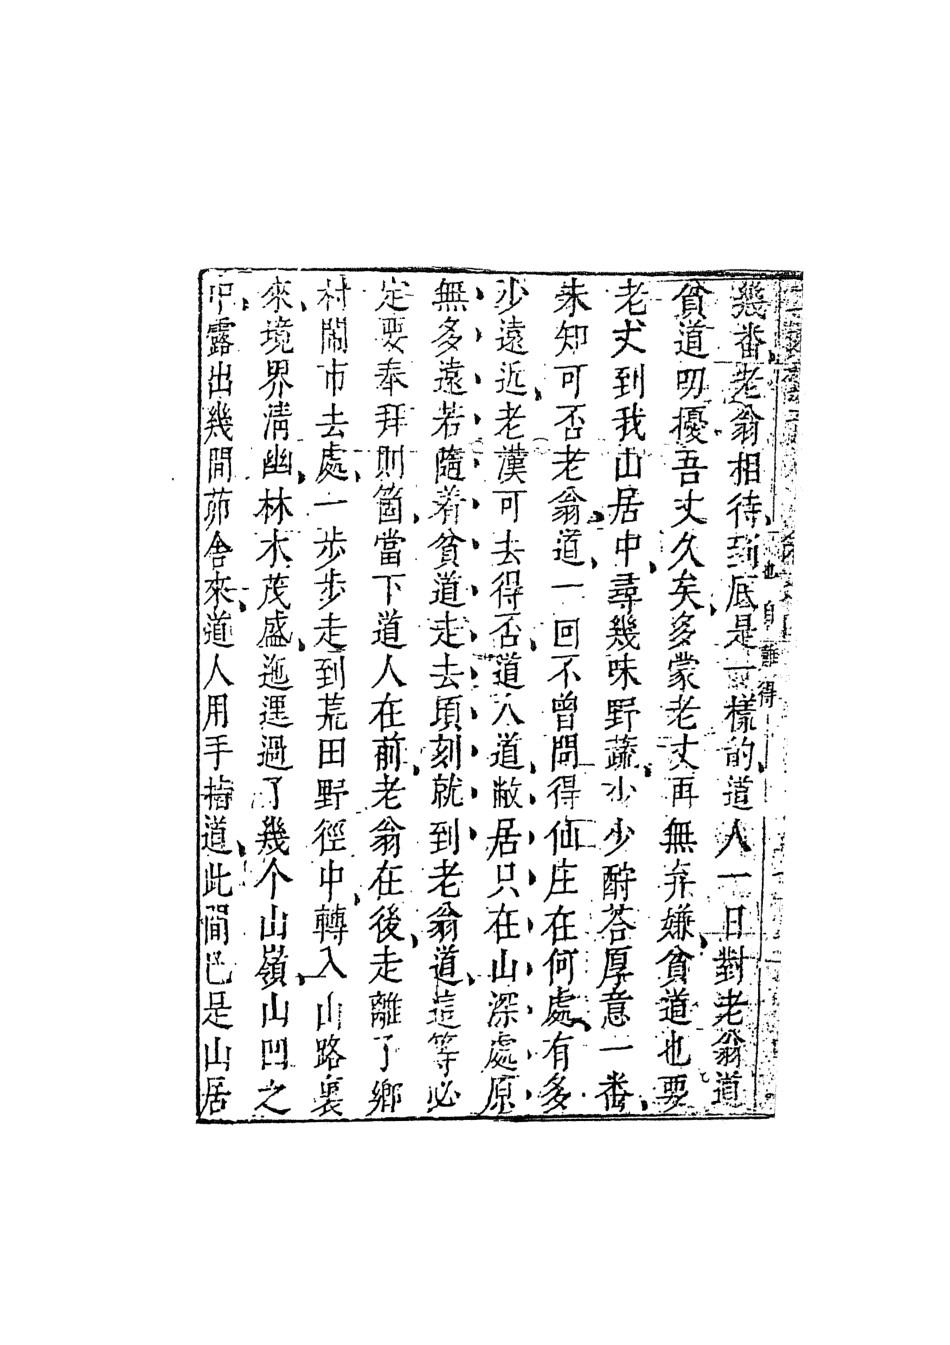 幾番老翁相待到底是一樣的道人一日對老翁道
也自難得
貧道叨擾吾丈久矣多蒙老丈再無弃嫌貧道也要
老丈到我山居中尋幾味野蔬少少酧荅厚意一番
未知可否老翁道一回不曾問得仙庄在何處有多
少遠近老漢可去得否道人道敝居只在山深處原
無多遠若隨着貧道走去頃刻就到老翁道這等必
定要奉拜則箇當下道人在前老翁在後走離了鄉
村鬧市去處一步步走到荒田野徑中轉入山路裏
來境界清幽林木茂盛迤逕過了幾个山嶺山凹之
中露出幾間茆舍來道人用手指道此間已是山居